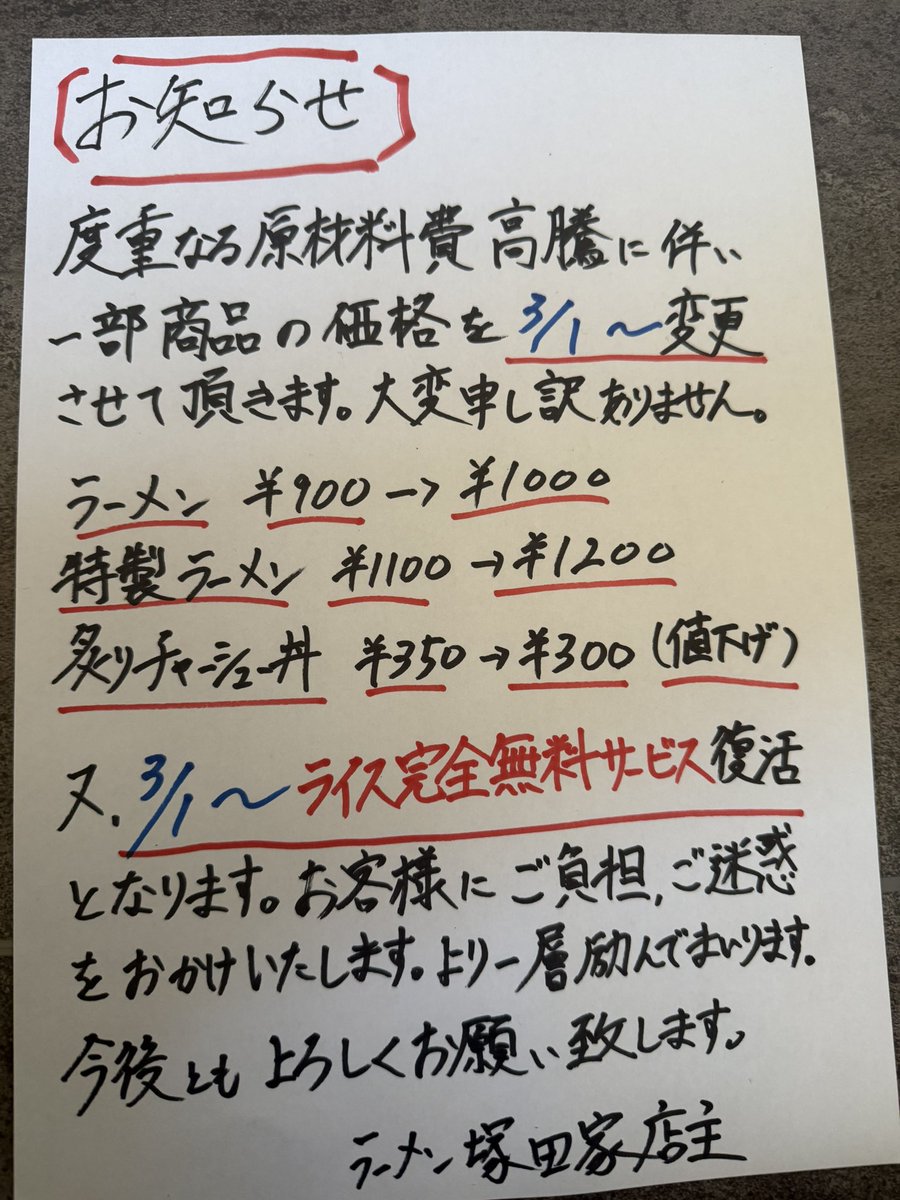 お知らせ
度重なる原材料費高騰に伴い
一部商品の価格を3/1〜変更
させて頂きます。大変申し訳ありません。
ラーメン ¥900→¥1000
特製ラーメン ¥1100→¥1200
炙りチャーシュー丼 ¥350→¥300(値下げ)
又、3/1〜ライス完全無料サービス復活
となります。お客様にご負担,ご迷惑
をおかけいたします。より一層励んでまいります。
今後ともよろしくお願い致します。
ラーメン塚田家店主